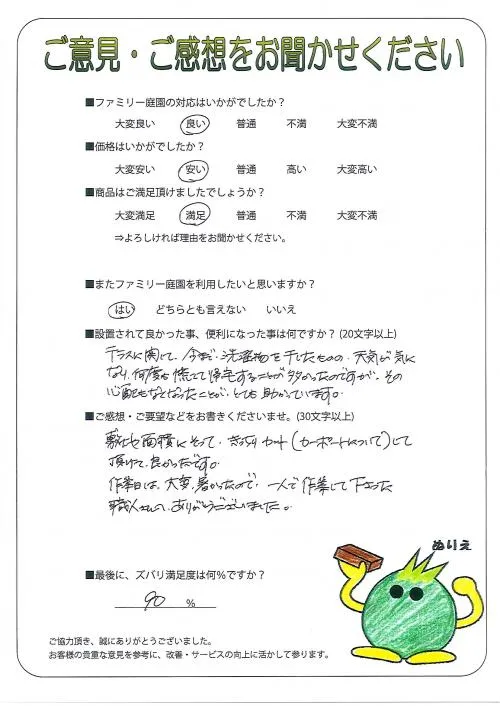 ご意見・ご感想をお聞かせください
■ファミリー庭園の対応はいかがでしたか?
大変良い 良い 普通 不満 大変不満
■価格はいかがでしたか?
大変安い 安い 普通 高い 大変高い
■商品はご満足頂けましたでしょうか?
大変満足 満足 普通 不満 大変不満
⇒よろしければ理由をお聞かせください。
■またファミリー庭園を利用したいと思いますか?
はい どちらとも言えない いいえ
■設置されて良かった事、便利になった事は何ですか? (20文字以上)
テラスに関して、今まで、洗濯物を干したものの、天気が気に
なり、何度も慌てて帰宅することが多かったのですが、その
心配もなくなったことが、とても助かっています。
■ご感想・ご要望などをお書きくださいませ。(30文字以上)
敷地面積にそって、きっちりカット(カーポートについて)して
頂けて、良かったです。
作業日は、大変、暑かったので、一人で作業して下さった
職人さん、ありがとうございました。
ぬりえ
■最後に、ズバリ満足度は何%ですか?
90 %
ご協力頂き、誠にありがとうございました。
お客様の貴重な意見を参考に、改善・サービスの向上に活かして参ります。